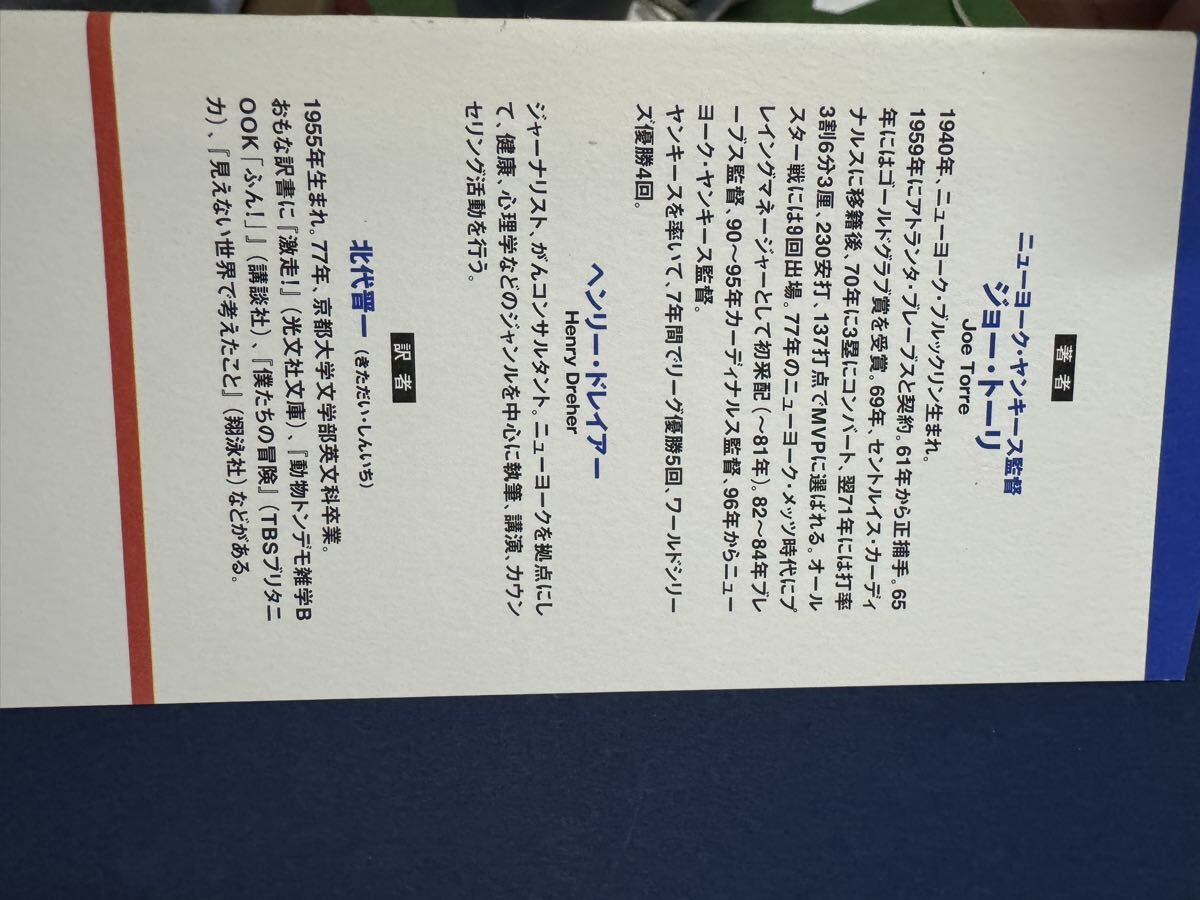 著者
ニューヨーク・ヤンキース監督
ジョー・トーリ
Joe Torre
1940年、ニューヨーク・ブルックリン生まれ。
1959年にアトランタ・ブレーブスと契約。61年から正捕手。65
年にはゴールドグラブ賞を受賞。69年、セントルイス・カーディ
ナルスに移籍後、70年に3塁にコンバート、翌71年には打率
3割6分3厘、230安打、137打点でMVPに選ばれる。オール
スター戦には9回出場。77年のニューヨーク・メッツ時代にプ
レイングマネージャーとして初采配(～81年)。82～84年ブレ
ーブス監督、90～95年カーディナルス監督、96年からニュー
ヨーク・ヤンキース監督。
ヤンキースを率いて、7年間でリーグ優勝5回、ワールドシリー
ズ優勝4回。
ヘンリー・ドレイアー
Henry Dreher
ジャーナリスト、がんコンサルタント。ニューヨークを拠点にし
て、健康、心理学などのジャンルを中心に執筆、講演、カウン
セリング活動を行う。
訳者
北代晋一(きただい・しんいち)
1955年生まれ。77年、京都大学文学部英文科卒業。
おもな訳書に『激走!』(光文社文庫)、『動物トンデモ雑学B
OOK「ふん!」』(講談社)、『僕たちの冒険』(TBSブリタニ
カ)、『見えない世界で考えたこと』(翔泳社)などがある。